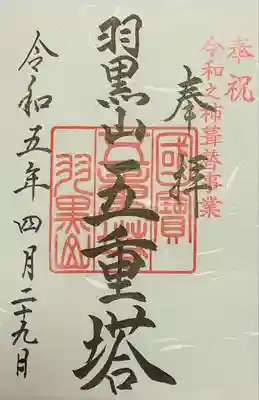 奉祝
令和之杮葺替事業
奉拝
國寶
五重塔
羽黒山
羽黒山
五重塔
令和五年四月二十九日